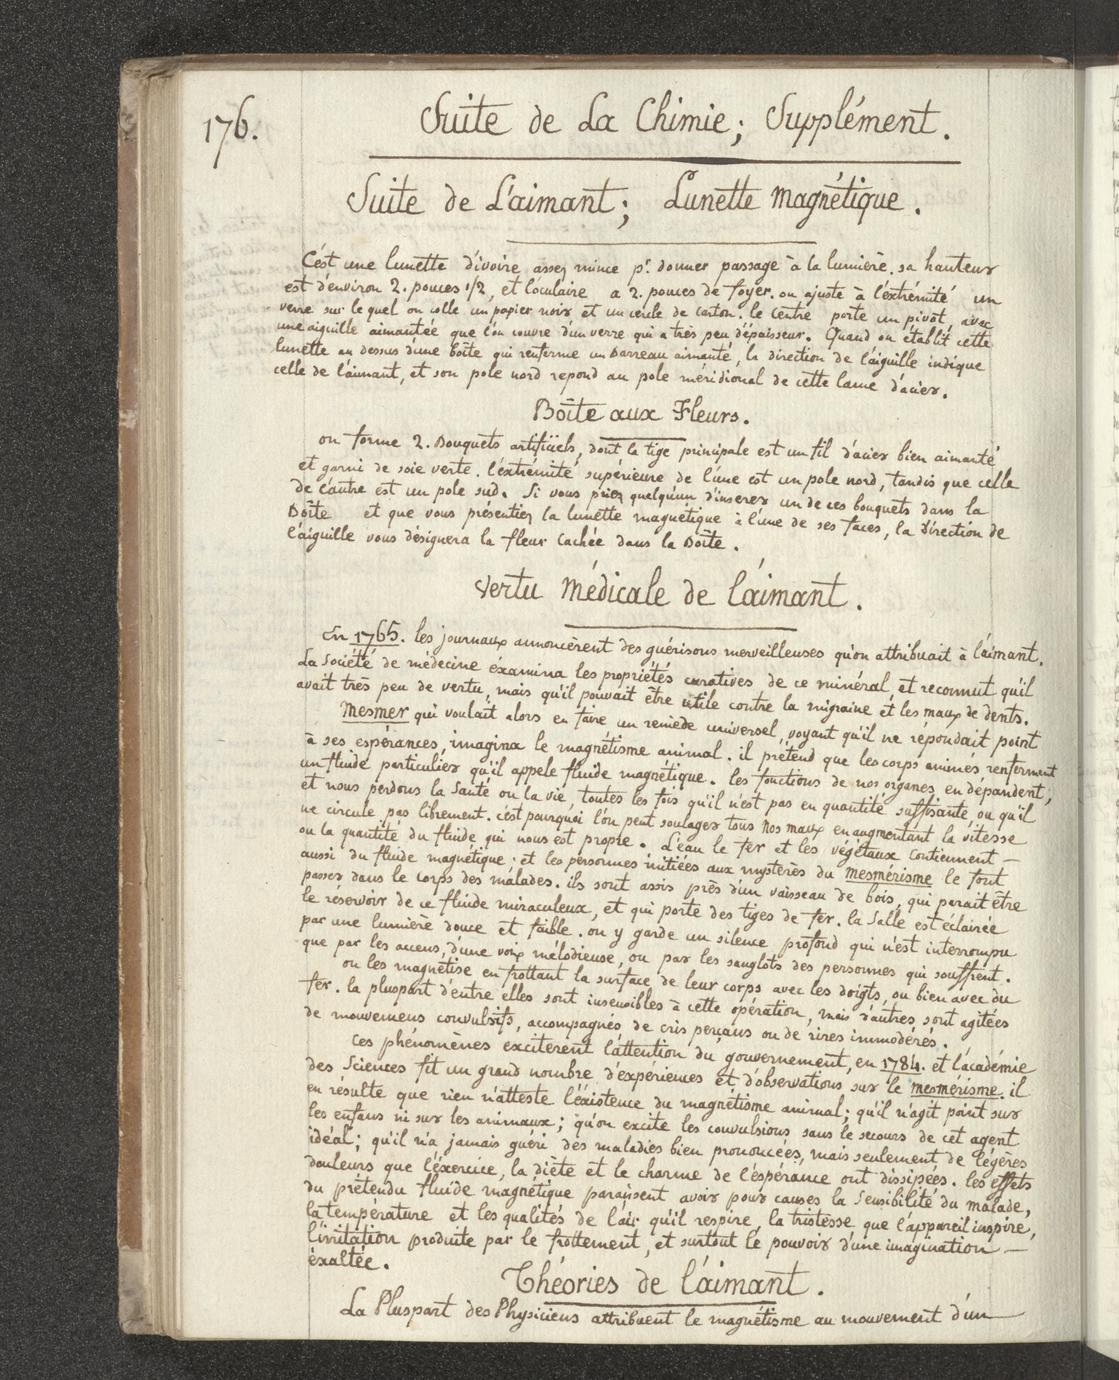 176.
Suite de La Chimie; Supplément.
Suite de L'aimant; Lunette magnétique.
C'ést une lunette d'ivoire assez mince pr. donner passage à la lumière. sa hauteur
est d'environ 2. pouces 1/2, et l'oculaire a 2. pouces de foyer. on ajuste à l'éxtrémité un
verre sur le quel on colle un papier noir et un cércle de carton. le centre porte un pivot, avec
une aiguille aimantée que l'on couvre d'un verre qui a très peu d'épaisseur. Quand on établit cette
lunette au dessus d'une boîte qui renferme un barreau aimanté, la direction de l'aiguille indique
celle de l'aimant, et son pole nord repond au pole méridional de cette lame d'acier.
Boîte aux Fleurs.
on forme 2. Bouquets artificiels, dont la tige principale est un fil d'acier bien aimanté
et garni de soie verte. l'éxtrémité supérieure de l'une est un pole nord, tandis que celle
de l'autre est un pole sud. Si vous priez quelqu'un d'inserer un de ces bouquets dans la
Boîte et que vous présentiez la lunette magnétique à l'une de ses faces, la direction de
l'aiguille vous désignera la fleur cachée dans la Boîte.
vertu Médicale de l'aimant.
En 1765. les journaux annoncèrent des guérisons merveilleuses qu'on attribuait à l'aimant.
La Société de médecine éxamina les propriétés curatives de ce minéral, et reconnut qu'il
avait très peu de vertu, mais qu'il pouvait être utile contre la migraine et les maux de dents.
Mesmer qui voulait alors en faire un remède universel, voyant qu'il ne repondait point
à ses espérances, imagina le magnétisme animal. il prétend que les corps animés renferment
un fluide particulier qu'il appele fluide magnétique. les fonctions de nos organes en dépendent;
et nous perdons la Santé ou la vie, toutes les fois qu'il n'est pas en quantité suffisante, ou qu'il
ne circule pas librement. c'ést pourquoi l'on peut soulager tous nos maux en augmentant la vitesse
ou la quantité du fluide qui nous est propre. L'eau le fer et les végétaux contiennent —
aussi du fluide magnétique; et les personnes initiées aux mystères du mesmérisme le font
passer dans le corps des malades. ils sont assis près d'un vaisseau de bois, qui parait être
le réservoir de ce fluide miraculeux, et qui porte des tiges de fer. la Salle est éclairée
par une lumière douce et faible. on y garde un silence profond qui n'est interrompu
que par les accens, d'une voix mélodieuse, ou par les sanglots des personnes qui souffrent.
on les magnétise en frottant la surface de leur corps avec les doigts, ou bien avec du
fer. la pluspart d'entre elles sont insensibles à cette opération, mais d'autres sont agitées
de mouvemens convulsifs, accompagnés de cris perçans ou de rires immodérés.
ces phénomènes exciterent l'attention du gouvernement, en 1784. et l'académie
des Sciences fit un grand nombre d'expériences et d'observations sur le mesmérisme. il
en résulte que rien n'atteste l'éxistence du magnétisme animal; qu'il n'agit point sur
les enfans ni sur les animaux; qu'on excite les convulsions sans le secours de cet agent
idéal; qu'il n'a jamais guéri des maladies bien prononcées, mais seulement de légères
douleurs que l'éxercice, la diète et le charme de l'éspérance ont dissipées. les effets
du prétendu fluide magnétique paraissent avoir pour causes la Sensibilité du malade,
la température et les qualités de l'air qu'il respire, la tristesse que l'appareil inspire,
l'irritation produite par le frottement, et surtout le pouvoir d'une imagination —
éxaltée.
Théories de l'aimant.
La Pluspart des Physiciens attribuent le magnétisme au mouvement d'un